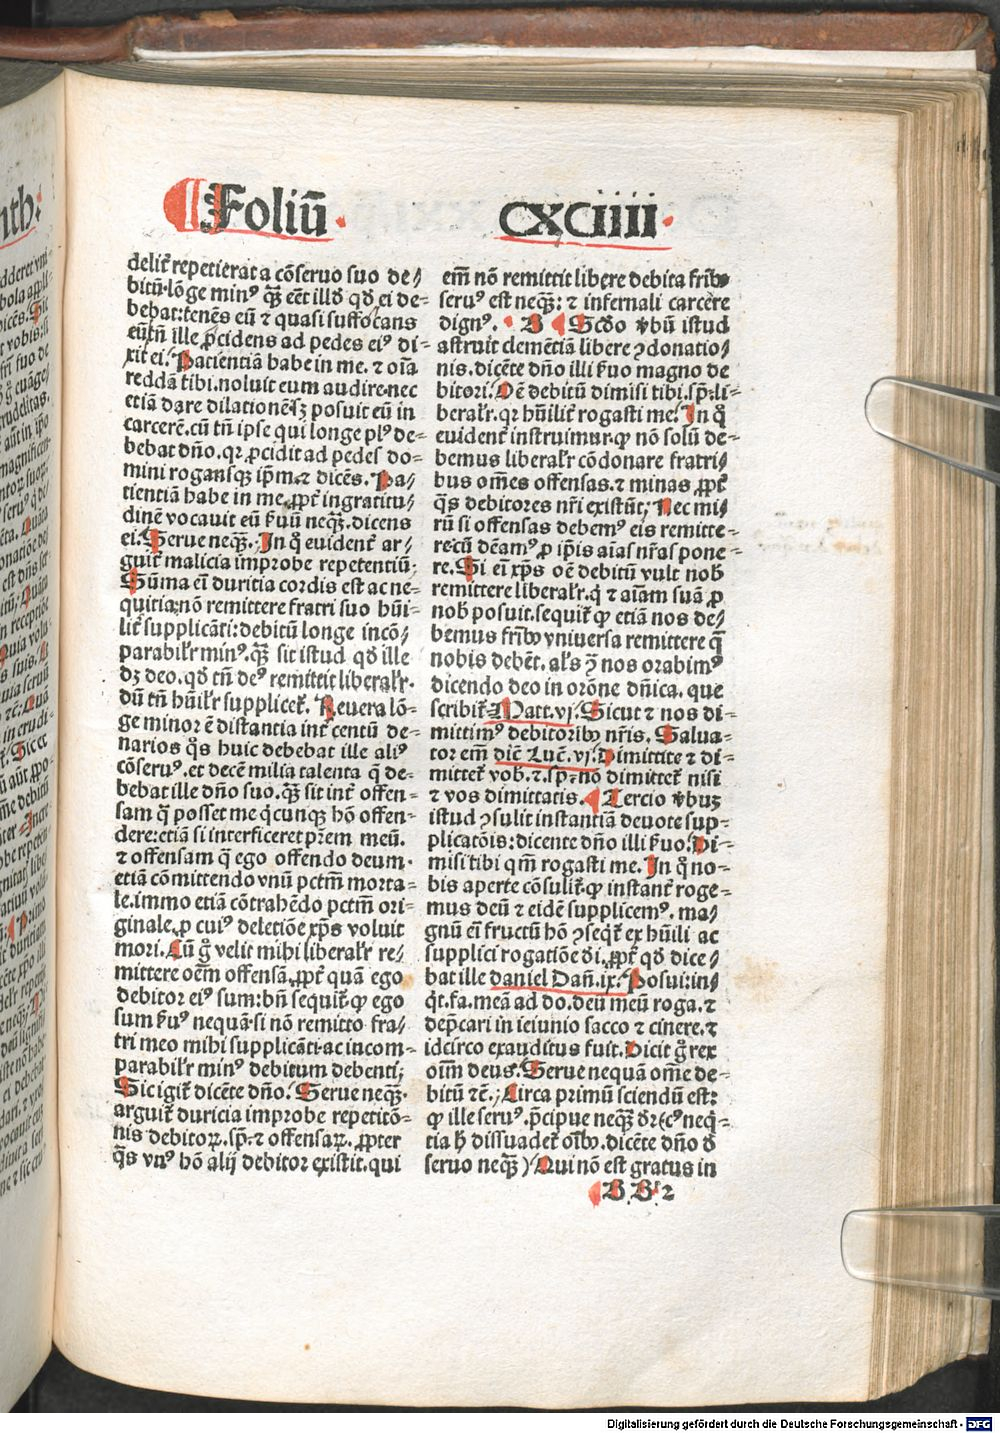 Foliū. CXCIIII.
delit̄ repetierat a cōseruo suo de⸗
bitū·lōge minꝰ q̄ꝫ eēt illđ qđ ei de⸗
bebat:tenēs eū ⁊ quasi suffocans
eū.tñ ille ꝓcidens ad pedes eiꝰ di⸗
xit ei. Patientiā habe in me. ⁊ oīa
reddā tibi. noluit eum audire.nec
etiā dare dilationē.sꝫ posuit eū in
carcerē.cū tñ ipse qui longe plꝰ de⸗
bebat dño. qꝛ ꝓcidit ad pedes do⸗
mini rogansqꝫ ip̄m.⁊ dicēs. Pa⸗
tientiā habe in me. ꝓpt̄ ingratitu⸗
dinē vocauit eū ẜuū neqꝫ.dicens
ei. Serue neqꝫ. In q̊ euident̄ ar⸗
guit̄ malicia improbe repetentiū;
Sūma eī duritia cordis est ac ne⸗
quitia;nō remittere fratri suo hūi⸗
lit̄ supplicāti:debitū longe incō⸗
parabil'r minꝰ. q̄ꝫ sit istud qđ ille
dꝫ deo.qđ tñ deꝰ remittit liberal'r.
dū tñ hūil'r supplicet̄. Reuera lō⸗
ge minor ē distantia int̄ centū de⸗
narios q̊s huic debebat ille aliꝰ
cōseruꝰ.et decē milia talenta q̄ de⸗
bebat ille dño suo.q̄ꝫ sit int̄ offen⸗
sam q̄ posset me q̊cunqꝫ hō offen⸗
dere:etiā si interficeret pr̄em meū.
⁊ offensam q̄ ego offendo deum.
etiā cōmittendo vnū pctm̄ morta⸗
le.immo etiā cōtrahēdo pctm̄ ori⸗
ginale.ꝓ cuiꝰ deletiōe xp̄s voluit
mori. Cū g̊ velit mihi liberal'r re⸗
mittere oēm offensā.ꝓpt̄ quā ego
debitor eiꝰ sum:bñ sequit̄ ꝙ ego
sum ẜuꝰ nequā·si nō remitto fra⸗
tri meo mihi supplicāti·ac incom⸗
parabil'r minꝰ debitum debenti;
Sic igit̄ dicēte dño. Serue neqꝫ.
arguit̄ duricia improbe repetitō⸗
nis debitoꝝ.sp̄.⁊ offensaꝝ. ꝓpter
q̊s vnꝰ hō alij debitor existit.qui
em̄ nō remittit libere debita fr̄ibꝰ
seruꝰ est neqꝫ: ⁊ infernali carcere
dignꝰ. B Scđo ꝟbū istud
astruit clemētiā libere ꝯdonatio⸗
nis.dicēte dño illi ẜuo magno de
bitori. Oē debitū dimisi tibi.sp̄.li⸗
beral'r.qꝛ hūilit̄ rogasti me. In q̊
euident̄ instruimur.ꝙ nō solū de⸗
bemus liberal'r cōdonare fratri⸗
bus om̄es offensas.⁊ minas ꝓpt̄
q̄s debitores nr̄i existūt; Nec mi⸗
rū si offensas debemꝰ eis remitte⸗
re:cū deam̄ꝰ ꝓ ip̄is aīas nr̄as pone⸗
re. Si eī xp̄s oē debitū vult nob̄
remittere liberal'r.q̇ ⁊ aīam suā ꝓ
nob̄ posuit.sequit̄ ꝙ etiā nos de⸗
bemus fr̄ibꝰ vniuersa remittere q̄
nobis debēt. al's ꝯ̄ nos orabimꝰ
dicendo deo in orōne dñica. que
scribit̄ Matt.vj. Sicut ⁊ nos di⸗
mittimꝰ debitoribꝰ nr̄is. Salua⸗
tor em̄ dic̄ Luc̄.vj. Dimittite ⁊ di⸗
mittet̄ vob̄.⁊.sp̄.nō dimittet̄ nisi
⁊ vos dimittatis. Tercio ꝟbuꝫ
istud ꝯsulit instantiā deuote sup⸗
plicatōis:dicente dño illi ẜuo. Di⸗
misi tibi qm̄ rogasti me. In q̊ no⸗
bis aperte cōsulit̄.ꝙ instant̄ roge⸗
mus deū ⁊ eidē supplicemꝰ. ma⸗
gnū eī fructū hō ꝯseqt̄ ex hūili ac
supplici rogatiōe đi.ꝓpt̄ qđ dice⸗
bat ille daniel Dañ.ix. Posui:in⸗
q̇t.fa.meā ad do.deū meū roga.⁊
dep̄cari in ieiunio sacco ⁊ cinere.⁊
idcirco exauditus fuit. Dicit g̊ rex
oīm deus. Serue nequā om̄e de⸗
bitū ⁊c̄.; Circa primū sciendū est:
ꝙ ille seruꝰ.p̄cipue neqꝫ dr̄:(cꝰ neq⸗
tia ħ dissuadet̄ oībꝰ.dicēte dño đ
seruo neqꝫ) Qui nō est gratus in
B B 2
Digitalisierung gefördert durch die Deutsche Forschungsgemeinschaft - DFG